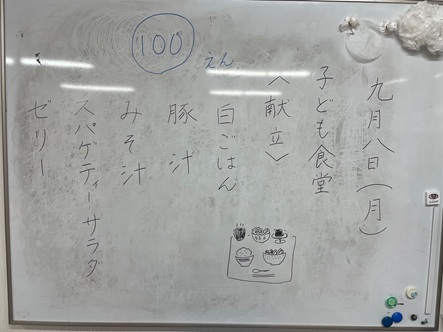 九月八日(月)
子ども食堂
〈献立〉
100
えん
白ごはん
豚汁
みそ汁
スパゲティーサラダ
ゼリー